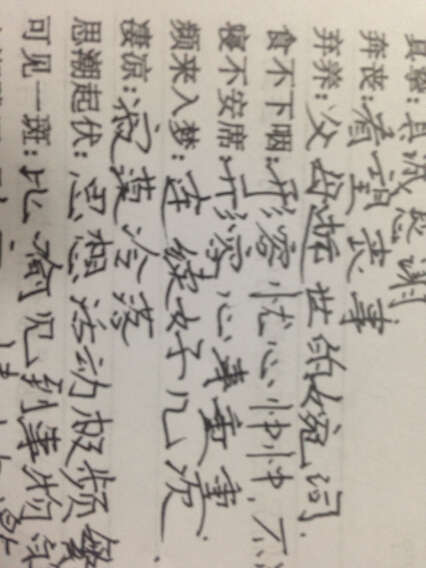 真挚:真诚恳谢
奔丧:看望丧事
弃养:父母逝世的婉词.
食不下咽:形容忧心忡忡,不
寝不安席:形容心事重重.
频来入梦:连续好几次.
凄凉:寂寞冷落
思潮起伏:思想活动极频繁.
可见一斑:比喻见到事物